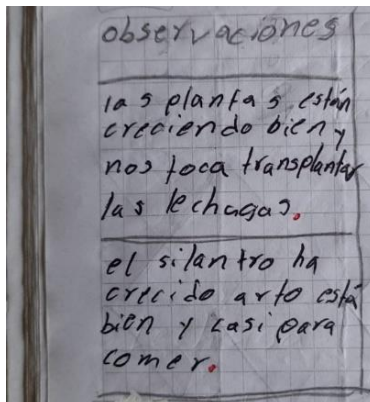 observaciones
las plantas están
creciendo bien y
nos toca transplantar
las lechagas.
el silantro ha
crecido arto está
bien y casi para
comer.